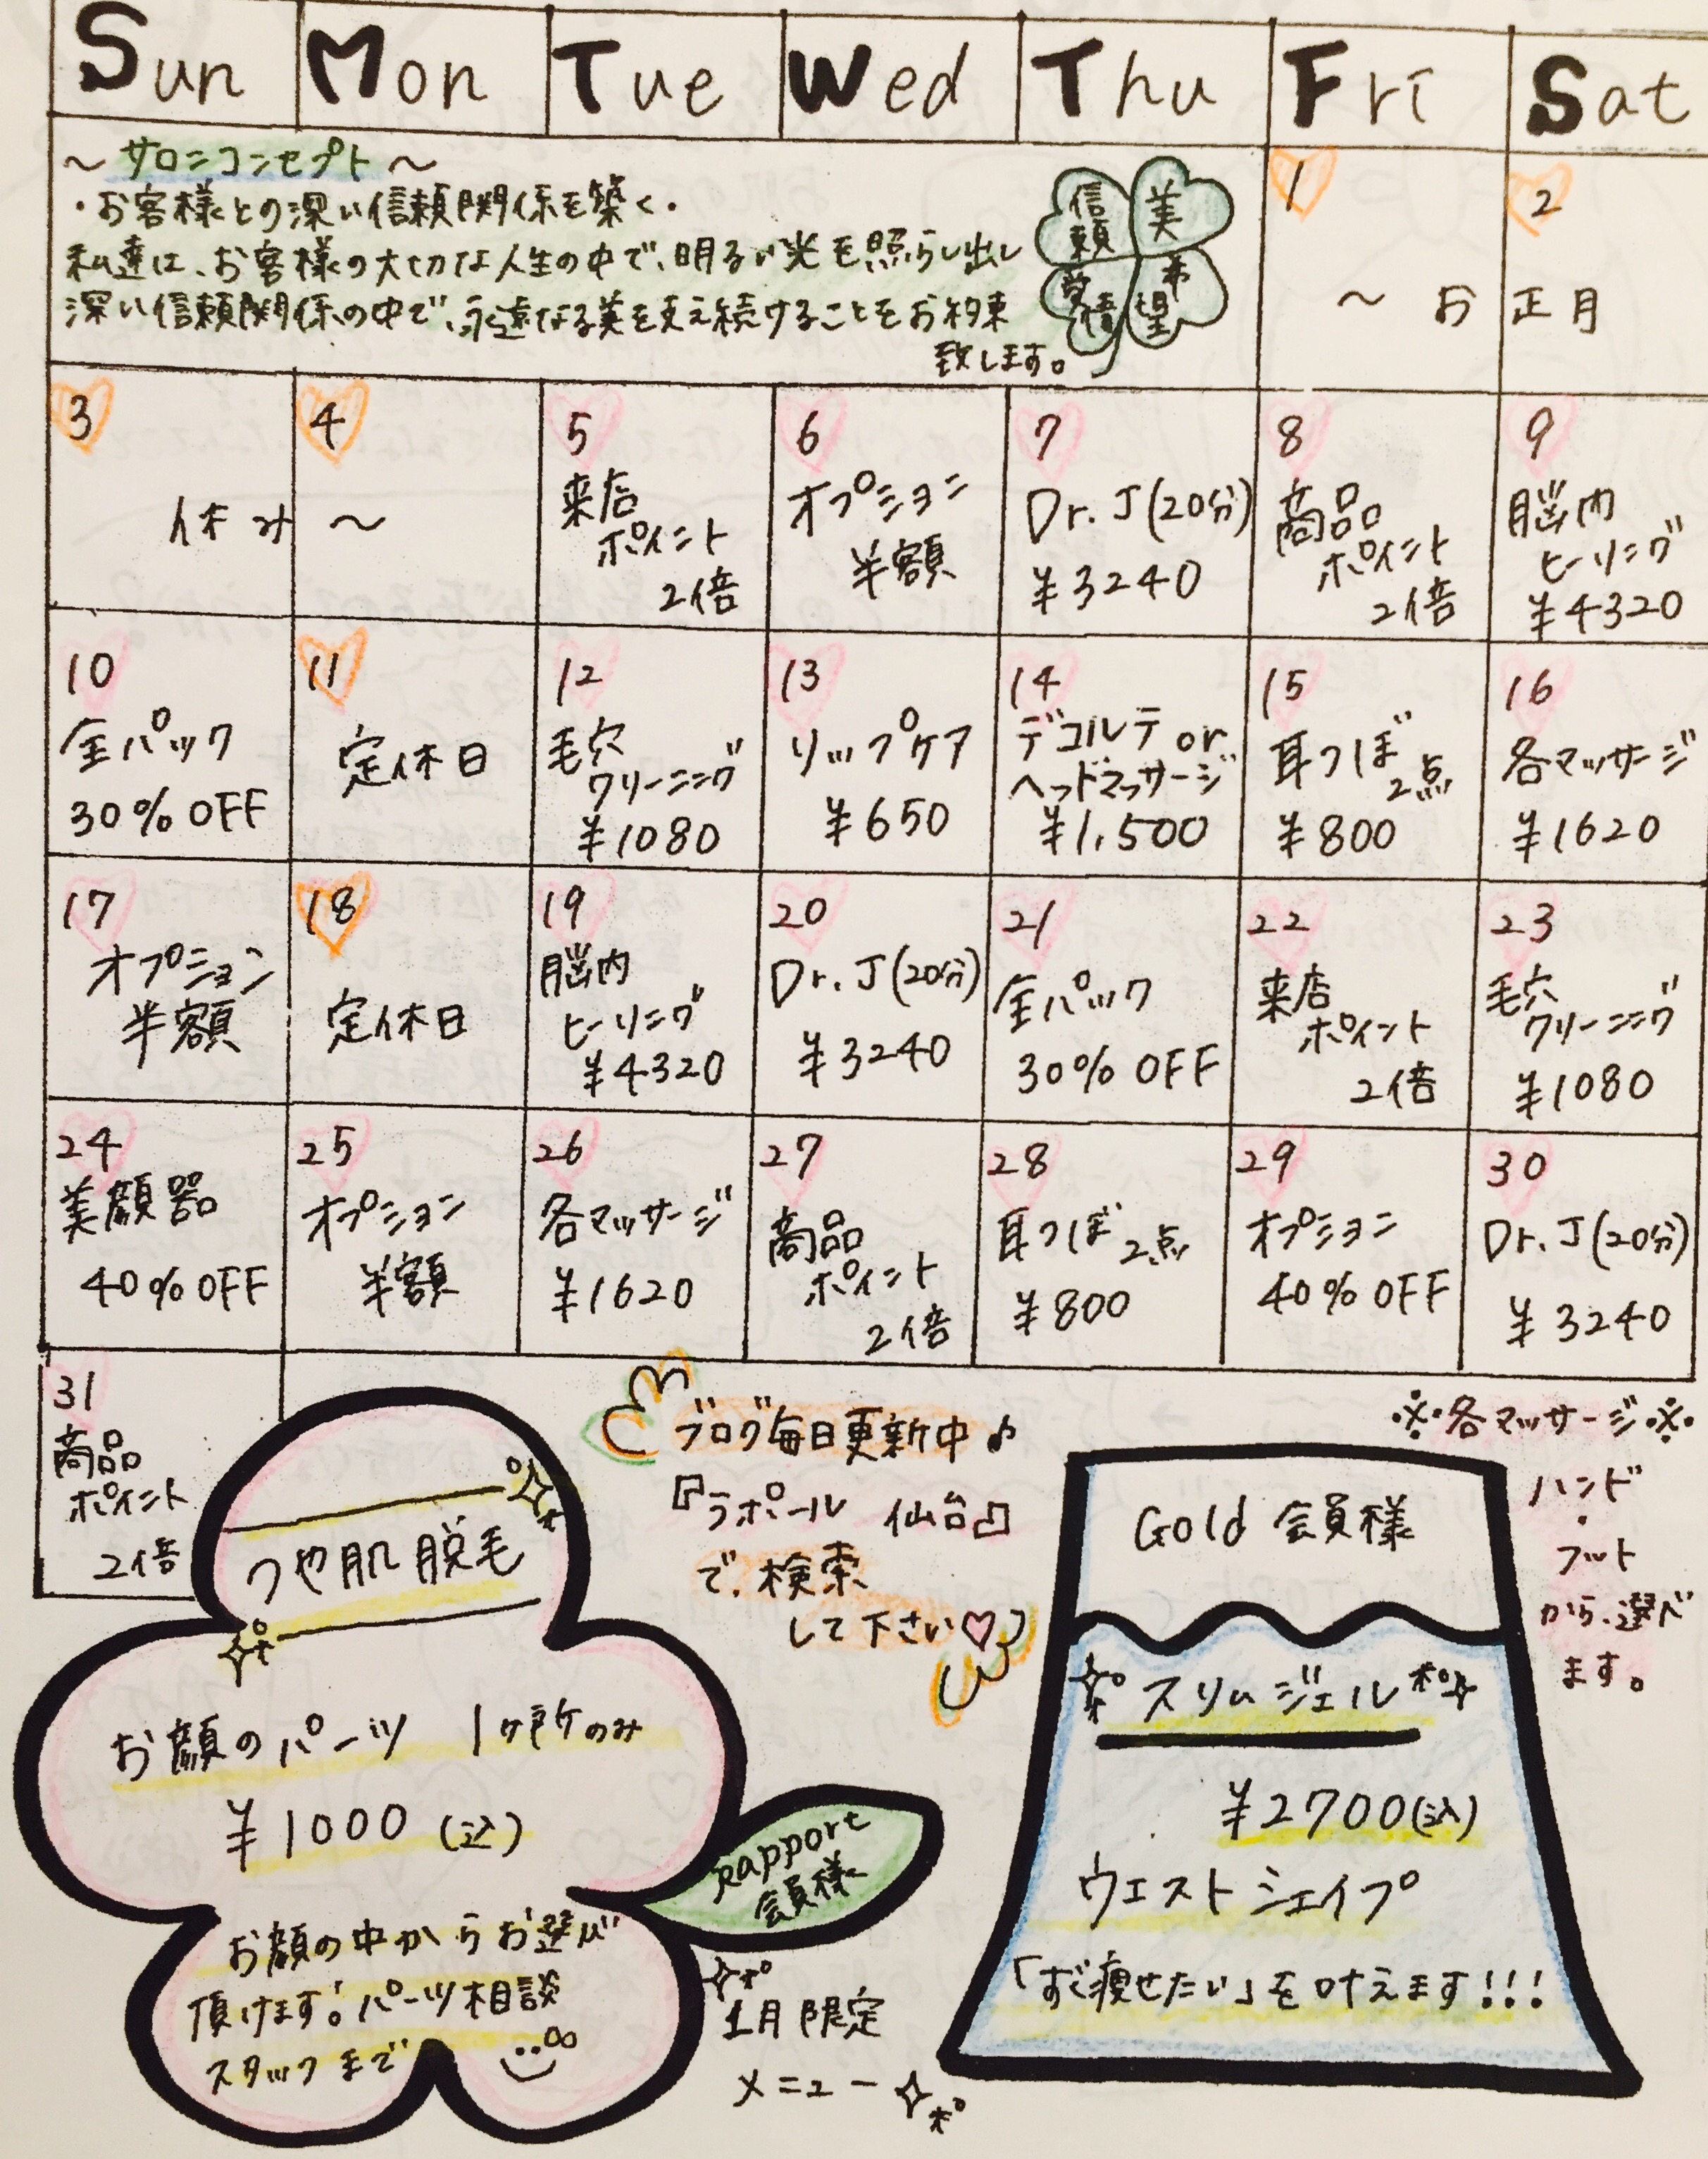 Sun Mon Tue Wed Thu Fri Sat
～サロンコンセプト～
・お客様との深い信頼関係を築く・
私達は、お客様の大切な人生の中で、明るい光を照らし出し
深い信頼関係の中で、永遠なる美を支え続けることをお約束
致します。
信頼
美
愛情
希望
1
2
～お正月
3
4
休み～
5
来店
ポイント
2倍
6
オプション
半額
7
Dr.J(20分)
¥3240
8
商品
ポイント
2倍
9
脳内
ヒーリング
¥4320
10
金パック
30%OFF
11
定休日
12
毛穴
クリーニング
¥1080
13
リップケア
¥650
14
デコルテor
ヘッドマッサージ
¥1,500
15
耳つぼ2点
¥800
16
各マッサージ
¥1620
17
オプション
半額
18
定休日
19
脳内
ヒーリング
¥4320
20
Dr.J(20分)
¥3240
21
金パック
30%OFF
22
来店
ポイント
2倍
23
毛穴
クリーニング
¥1080
24
美顔器
40%OFF
25
オプション
半額
26
各マッサージ
¥1620
27
商品
ポイント
2倍
28
耳つぼ2点
¥800
29
オプション
40%OFF
30
Dr.J(20分)
¥3240
31
商品
ポイント
2倍
つや肌脱毛
お顔のパーツ 1ヶ所のみ
¥1000(込)
お顔の中からお選び
頂けます!パーツ相談
スタッフまで
Rapport
会員様
ブログ毎日更新中♪
『ラポール 仙台』
で、検索
して下さい♡
1月限定
メニュー
※各マッサージ※
ハンド
・
フット
から、選べ
ます。
Gold 会員様
スリムジェル
¥2700(込)
ウエストシェイプ
「すぐ痩せたい」を叶えます!!!